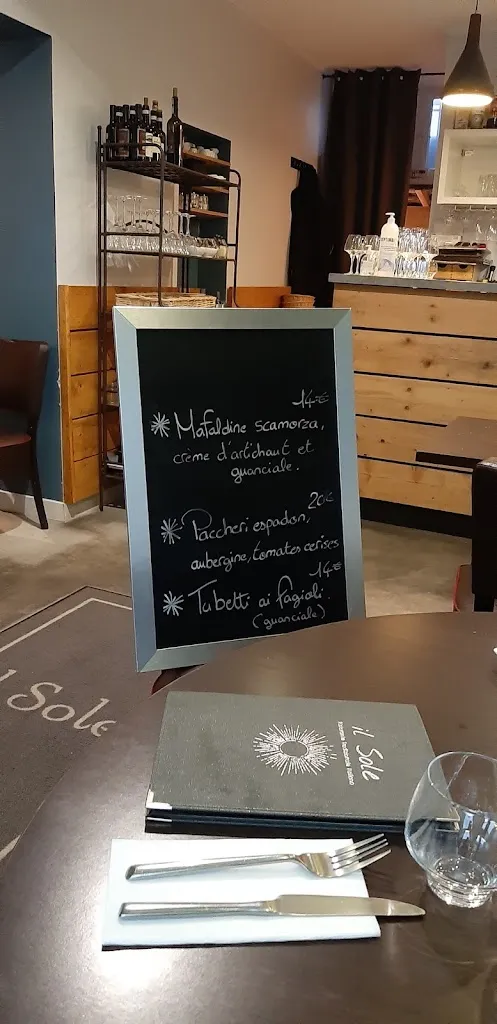 14€
Mafaldine scamorza,
crème d'artichaut et
guanciale.
20€
Paccheri espadon,
aubergine, tomates cerises
14€
Tubetti ai fagioli.
(guanciale)
il Sole
l Sole